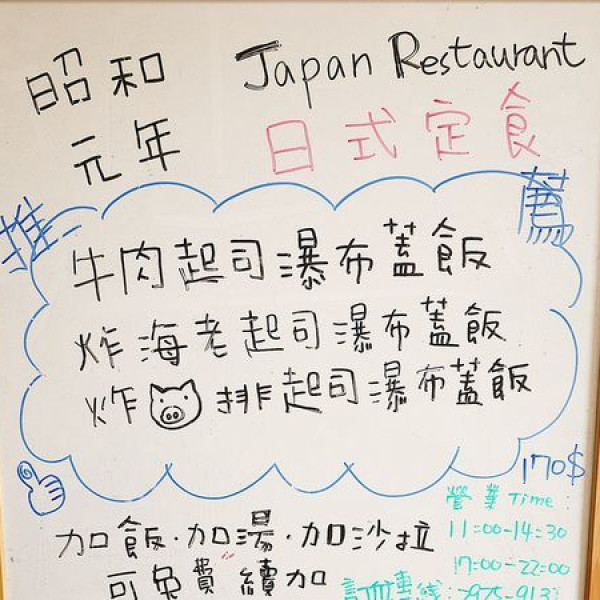 昭和 Japan Restaurant
元年 日式定食
推薦
牛肉起司瀑布蓋飯
炸海老起司瀑布蓋飯
炸排起司瀑布蓋飯
170$
營業Time:
11:00-14:30
17:00-22:00
加飯·加湯·加沙拉
可免費續加